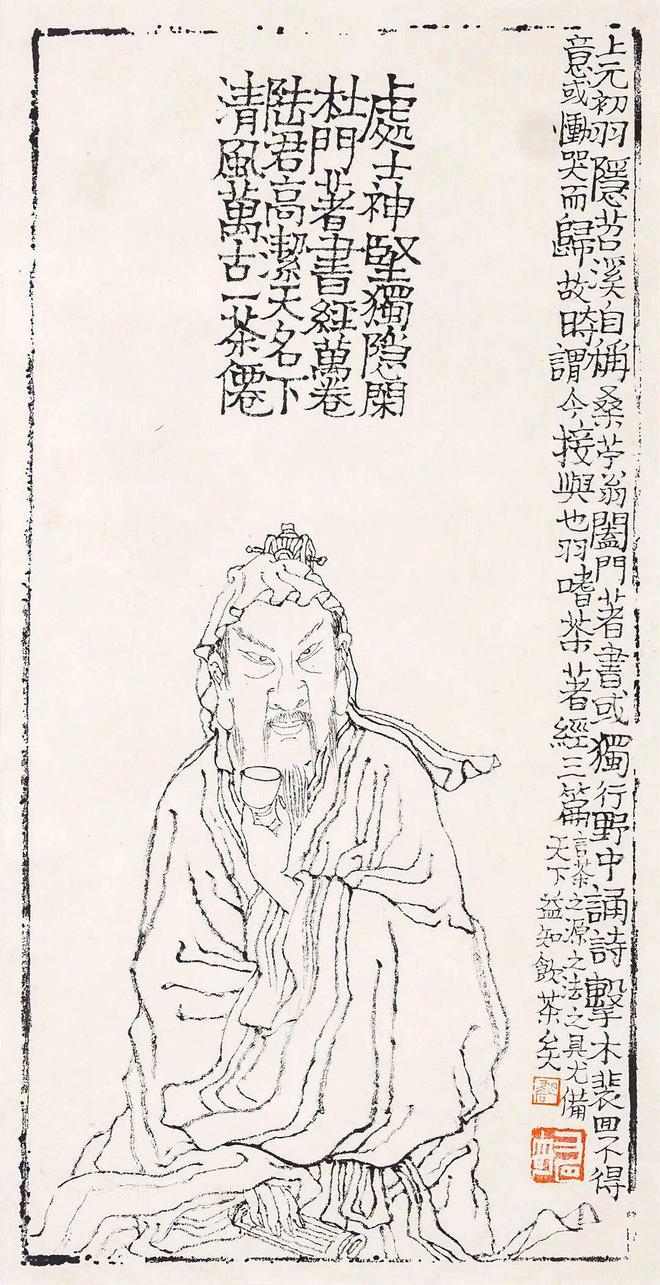 上元初羽隱苕溪自稱桑苧翁闔門著書或獨行野中誦詩擊木裴回不得
意或慟哭而歸故時謂今接輿也羽嗜茶著經三篇
言茶之源之法之具尤備
天下益知飲茶矣
處士神堅獨隐閑
杜門著書經萬卷
陸君高潔天名下
清風萬古一茶僊